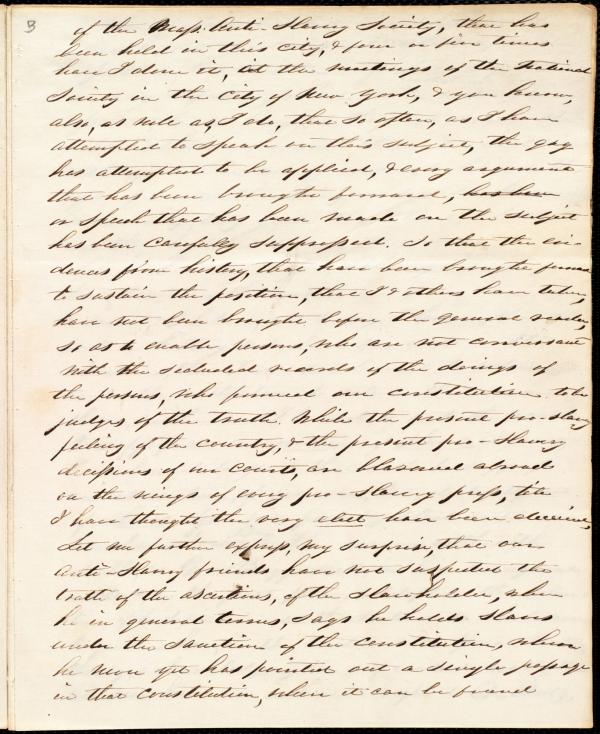 3
of the Mass. Anti-Slavery Society, that has
been held in this city, & four or five times
have I done it, at the meetings of the National
Society in the City of New York, & you know,
also, as well as, I do, that so often, as I have
attempted to speak on this subject, the gag
has attempted to be applied, & every argument
that has been brought forward, has been
or speech that has been made on the subject
has been carefully suppressed. So that the evi-
dences from history, that have been brought forward
to sustain the position, that I & others have taken,
have not been brought before the general reader,
so as to enable persons, who are not conversant
with the secluded records of the doings of
the persons, who formed our constitution to be
judges of the truth. While the present pro-slavery
feeling of the country, & the present pro-Slavery
decissions of our Courts, are blazoned abroad
on the wings of every pro-Slavery press, till
I have thought the very elect have been deceived,
Let me further express, my surprise, that our
Anti-Slavery friends have not suspected the
truth of the assertions, of the Slaveholder, when
he in general terms, says he holds Slaves
under the sanction of the constitution, when
he never yet has pointed out a single passage
in that Constitution, where it can be found